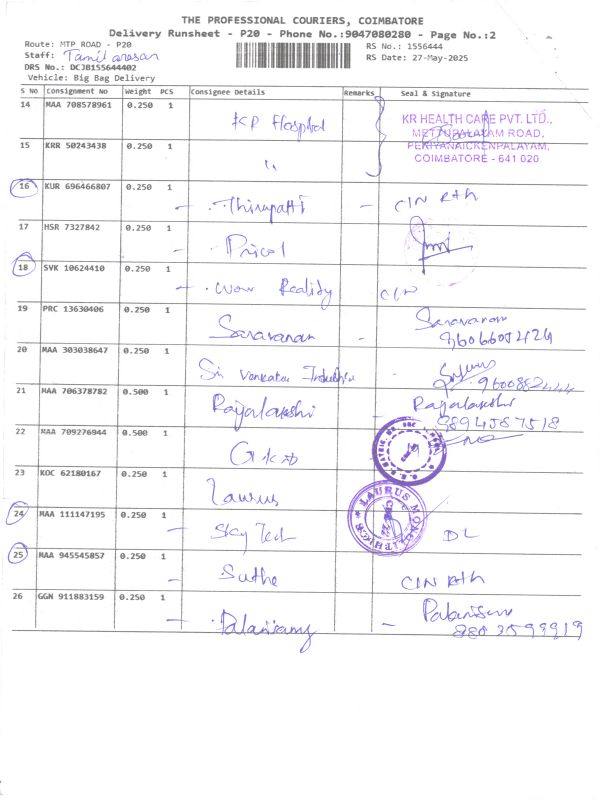 THE PROFESSIONAL COURIERS, COIMBATORE
Delivery Runsheet - P20 - Phone No.:9047080280 - Page No.:2
Route: MTP ROAD - P20
RS No.: 1556444
Staff: Tamil arasan
RS Date: 27-May-2025
DRS No.: DCJB155644402
Vehicle: Big Bag Delivery
S No Consignment No Weight PCS Consignee Details Remarks Seal & Signature
14 MAA 708578961 0.250 1 KP Hospital
KR HEALTH CARE PVT. LTD.,
METTUPALAYAM ROAD,
PERIYANAICKENPALAYAM,
COIMBATORE - 641 020
15 KRR 50243438 0.250 1 "
16 KUR 696466807 0.250 1 - Thirupatti - CIN Rth
17 HSR 7327842 0.250 1 - Pricol
18 SVK 10624410 0.250 1 - Wow Reality CIN
19 PRC 13630406 0.250 1 Saravanan - Saravanan
20 MAA 303038647 0.250 1 Sri Venkatea
21 MAA 706378782 0.500 1 Rajalakshi - Rajalakshi
9894587518
22 MAA 709276944 0.500 1
23 KOC 62180167 0.250 1 Laurus
LAURUS
24 MAA 111147195 0.250 1 - Sky Tech DL
25 MAA 945545857 0.250 1 - Suthe CIN Rth
26 GGN 911883159 0.250 1 - Palanisamy -